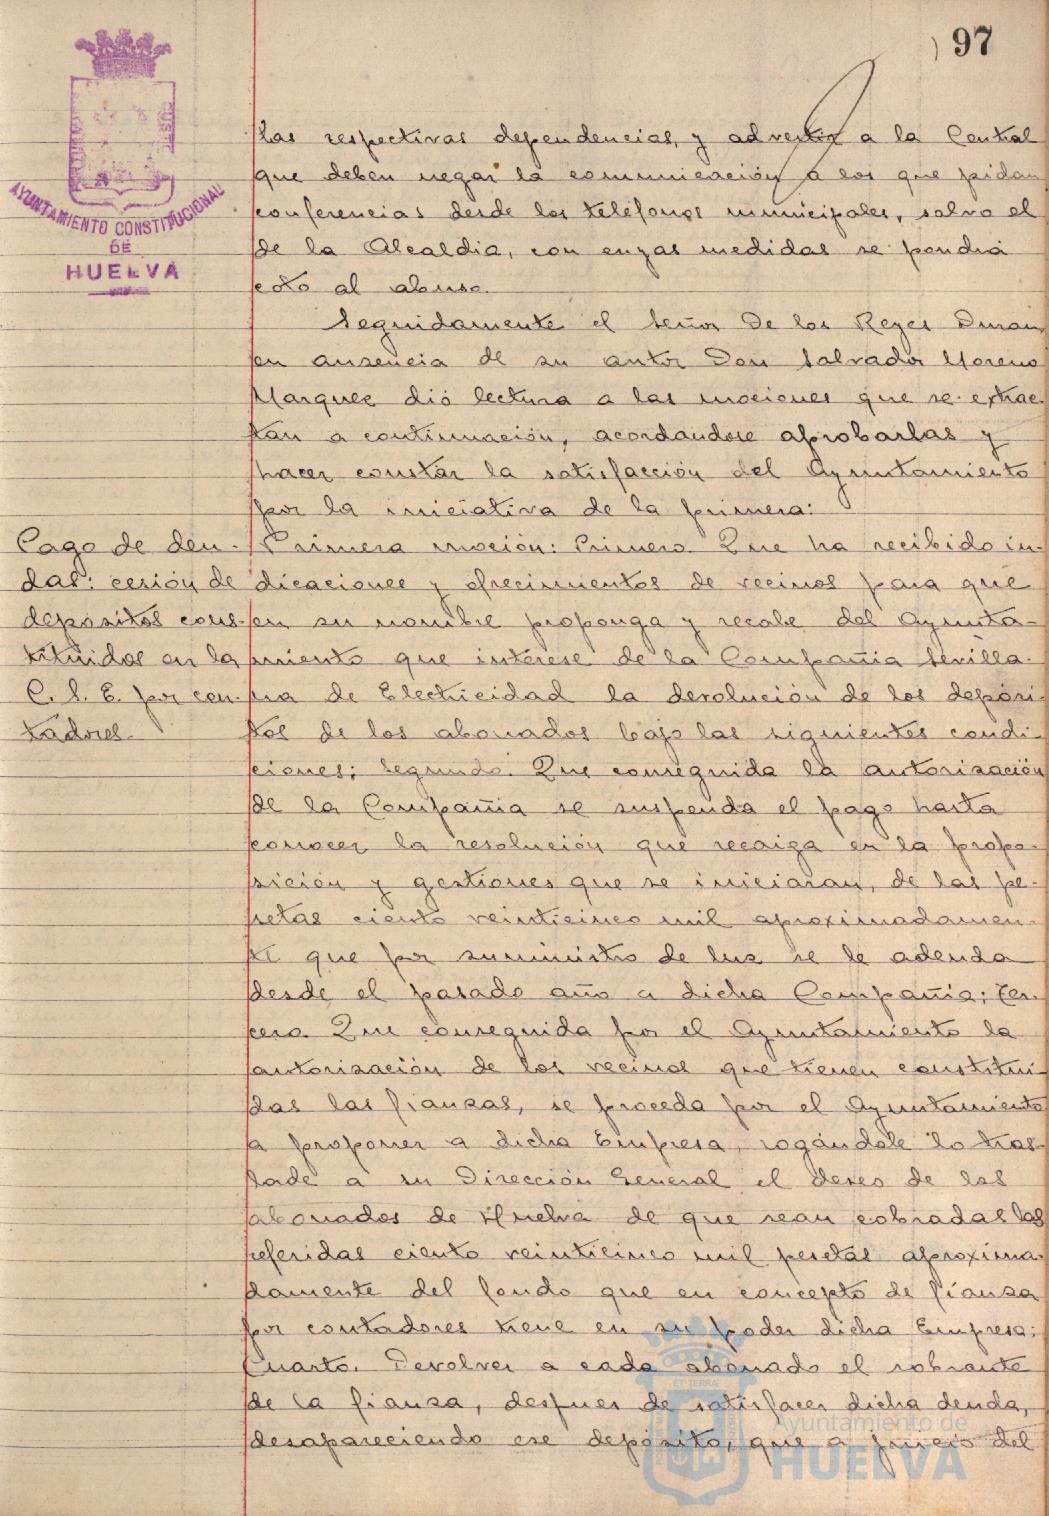 97
AYUNTAMIENTO CONSTITUCIONAL
DE
HUELVA
las respectivas dependencias, y advertir a la Central
que deben negar la comunicación a los que pidan
conferencias desde los teléfonos municipales, salvo el
de la Alcaldia, con cuyas medidas se pondrá
coto al abuso.
Seguidamente el Señor De los Reyes Duran
en ausencia de su autor Don Salvador Moreno
Marquez dió lectura a las mociones que se extrac-
tan a continuación, acordandose aprobarlas y
hacer constar la satisfacción del Ayuntamiento
por la iniciativa de la primera:
Pago de deu-
das: cesión de
depositos cons-
tituidos en la
C. S. E. por con-
tadores.
Primera moción: Primero. Que ha recibido in-
dicaciones y ofrecimientos de vecinos para que
en su nombre proponga y recabe del Ayunta-
miento que interese de la Compañia Sevilla-
na de Electricidad la devolución de los depósi-
tos de los abonados bajo las siguientes condi-
ciones; Segundo. Que conseguida la autorización
de la Compañia se suspenda el pago hasta
conocer la resolución que recaiga en la propo-
sición y gestiones que se iniciaran, de las pe-
setas ciento veinticinco mil aproximadamen-
te que por suministro de luz se le adeuda
desde el pasado año a dicha Compañia; Ter-
cero. Que conseguida por el Ayuntamiento la
autorización de los vecinos que tienen constitui-
das las fianzas, se proceda por el Ayuntamiento
a proponer a dicha Empresa, rogándole lo tras-
lade a su Dirección General el deseo de los
abonados de Huelva de que sean cobradas las
referidas ciento veinticinco mil pesetas aproxima-
damente del fondo que en concepto de fianza
por contadores tiene en su poder dicha Empresa;
Cuarto. Devolver a cada abonado el sobrante
de la fianza, despues de satisfacer dicha deuda,
desapareciendo ese depósito, que a juicio del
Ayuntamiento de
HUELVA